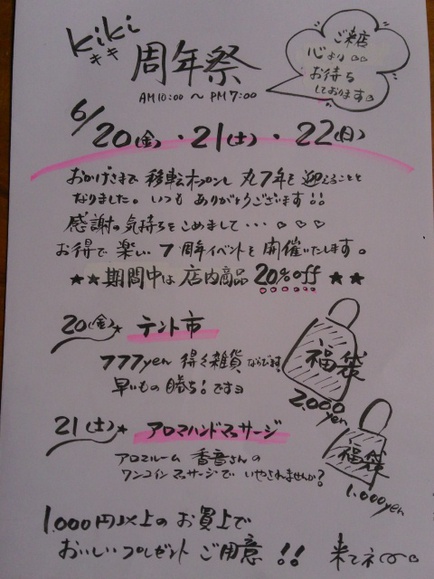 kiki
キキ
周年祭
AM10:00 〜 PM7:00
ご来店
心より♡♡
お待ち
しております♡
6/20(金)・21(土)・22(日)
おかげさまで 移転オープンし 丸7年を 迎えることと
なりました。いつも ありがとうございます!!
感謝の気持ちをこめまして・・・♡♡♡
お得で 楽しい 7周年イベントを 開催いたします。
★★期間中は 店内商品 20%off ★★
20(金)★ テント市
777yen 得々雑貨ならびます!
早いもの 勝ち!ですョ
福袋
2,000
yen
21(土)★ アロマハンドマッサージ
アロマルーム 香音さんの
ワンコインマッサージで いやされませんか?
福袋
1,000yen
1,000円以上の お買上で
おいしいプレゼント ご用意!! 来てネ